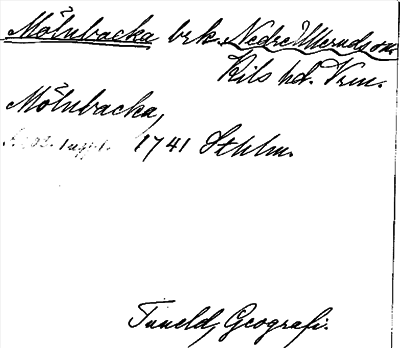 Mölnbacka brk. Nedre Ulleruds sn.
Kils hd. Vrm.
Mölnbacka,
1741 Sthlm.
Tuneld, Geografi.